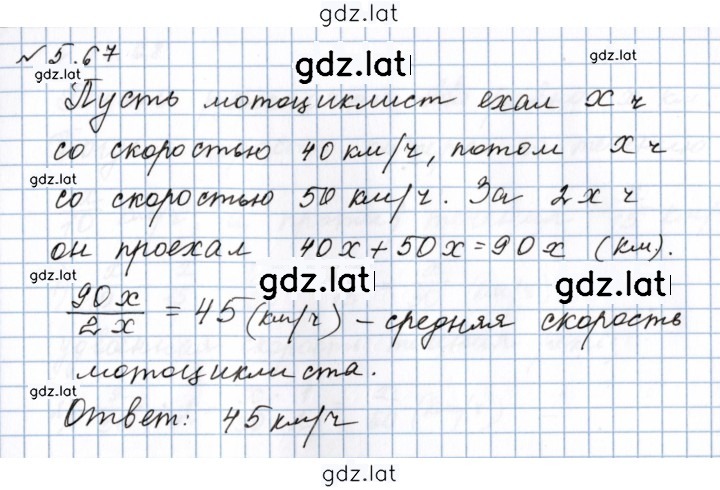 gdz.lat
№ 5.67
gdz.lat gdz.lat gdz.lat
Пусть мотоциклист ехал x ч
со скоростью 40 км/ч, потом x ч
gdz.lat
со скоростью 50 км/ч. За 2x ч
он проехал 40x + 50x = 90x (км).
gdz.lat gdz.lat gdz.lat
90x/2x = 45 (км/ч) – средняя скорость
мотоциклиста.
gdz.lat
Ответ: 45 км/ч
gdz.lat